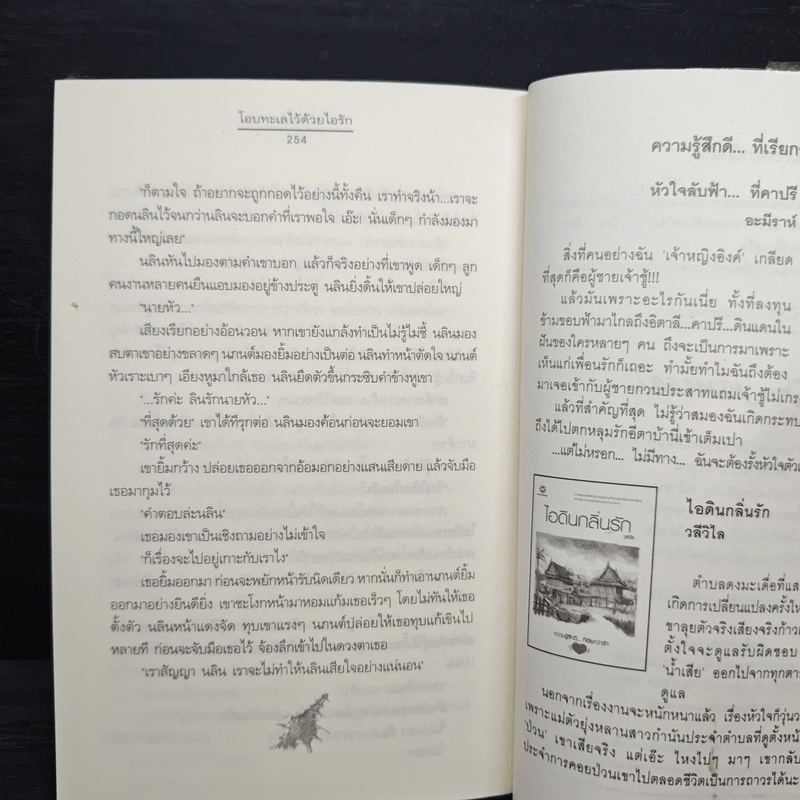 โอบทะเลไว้ด้วยไอรัก
254
"ก็ตามใจ ถ้าอยากจะถูกกอดไว้อย่างนี้ทั้งคืน เราทำจริงน้า...เราจะ
กอดนลินไว้จนกว่านลินจะบอกคำที่เราพอใจ เอ๊ะ! นั่นเด็กๆ กำลังมองมา
ทางนี้ใหญ่เลย"
นลินหันไปมองตามคำเขาบอก แล้วก็จริงอย่างที่เขาพูด เด็กๆ ลูก
คนงานหลายคนยืนแอบมองอยู่ข้างประตู นลินยิ่งดิ้นให้เขาปล่อยใหญ่
"นายหัว..."
เสียงเรียกอย่างอ้อนวอน หากเขายังแกล้งทำเป็นไม่รู้ไม่ชี้ นลินมอง
สบตาเขาอย่างขลาดๆ นภนต์มองยิ้มอย่างเป็นต่อ นลินทำหน้าตัดใจ นภนต์
หัวเราะเบาๆ เอียงหูมาใกล้เธอ นลินยืดตัวขึ้นกระซิบคำข้างหูเขา
"...รักค่ะ ลินรักนายหัว..."
"ที่สุดด้วย" เขาได้ทีรุกต่อ นลินมองค้อนก่อนจะยอมเขา
"รักที่สุดค่ะ"
เขายิ้มกว้าง ปล่อยเธอออกจากอ้อมอกอย่างแสนเสียดาย แล้วจับมือ
เธอมากุมไว้
"คำตอบล่ะนลิน"
เธอมองเขาเป็นเชิงถามอย่างไม่เข้าใจ
"ก็เรื่องจะไปอยู่เกาะกับเราไง"
เธอยิ้มออกมา ก่อนจะพยักหน้ารับนิดเดียว หากนั่นก็ทำเอานภนต์ยิ้ม
ออกมาอย่างยินดียิ่ง เขาชะโงกหน้ามาหอมแก้มเธอเร็วๆ โดยไม่ทันให้เธอ
ตั้งตัว นลินหน้าแดงจัด ทุบเขาแรงๆ นภนต์ปล่อยให้เธอทุบแก้เขินไป
หลายที ก่อนจะจับมือเธอไว้ จ้องลึกเข้าไปในดวงตาเธอ
"เราสัญญา นลิน เราจะไม่ทำให้นลินเสียใจอย่างแน่นอน"
ความรู้สึกดี... ที่เรียก
หัวใจลับฟ้า... ที่คาปรี
อะมีราห์
สิ่งที่คนอย่างฉัน 'เจ้าหญิงอิงค์' เกลียด
ที่สุดก็คือผู้ชายเจ้าชู้!!!
แล้วมันเพราะอะไรกันเนี่ย ทั้งที่ลงทุน
ข้ามขอบฟ้ามาไกลถึงอิตาลี...คาปรี...ดินแดนใน
ฝันของใครหลายๆ คน ถึงจะเป็นการมาเพราะ
เห็นแก่เพื่อนรักก็เถอะ ทำมั้ยทำไมฉันถึงต้อง
มาเจอเข้ากับผู้ชายกวนประสาทแถมเจ้าชู้ไม่เกร
แล้วที่สำคัญที่สุด ไม่รู้ว่าสมองฉันเกิดกระทบ
ถึงได้ไปตกหลุมรักอีตาบ้านี่เข้าเต็มเปา
...แต่ไม่หรอก... ไม่มีทาง... ฉันจะต้องรั้งหัวใจตัว
ไอดินกลิ่นรัก
วลีวิไล
ไอดินกลิ่นรัก
วลีวิไล
ตำบลดงมะเดื่อที่แส
เกิดการเปลี่ยนแปลงครั้งให
ขาลุยตัวจริงเสียงจริงก้าวเ
ตั้งใจจะดูแลรับผิดชอบ
'น้ำเสีย' ออกไปจากทุกตาร
ดูแล
นอกจากเรื่องงานจะหนักหนาแล้ว เรื่องหัวใจก็วุ่นว
เพราะแม่ตัวยุ่งหลานสาวกำนันประจำตำบลที่ดูตั้งหน้
'ป่วน' เขาเสียจริง แต่เอ๊ะ ไหงไปๆ มาๆ เขากลับ
ประจำการคอยป่วนเขาไปตลอดชีวิตเป็นการถาวรได้นะ